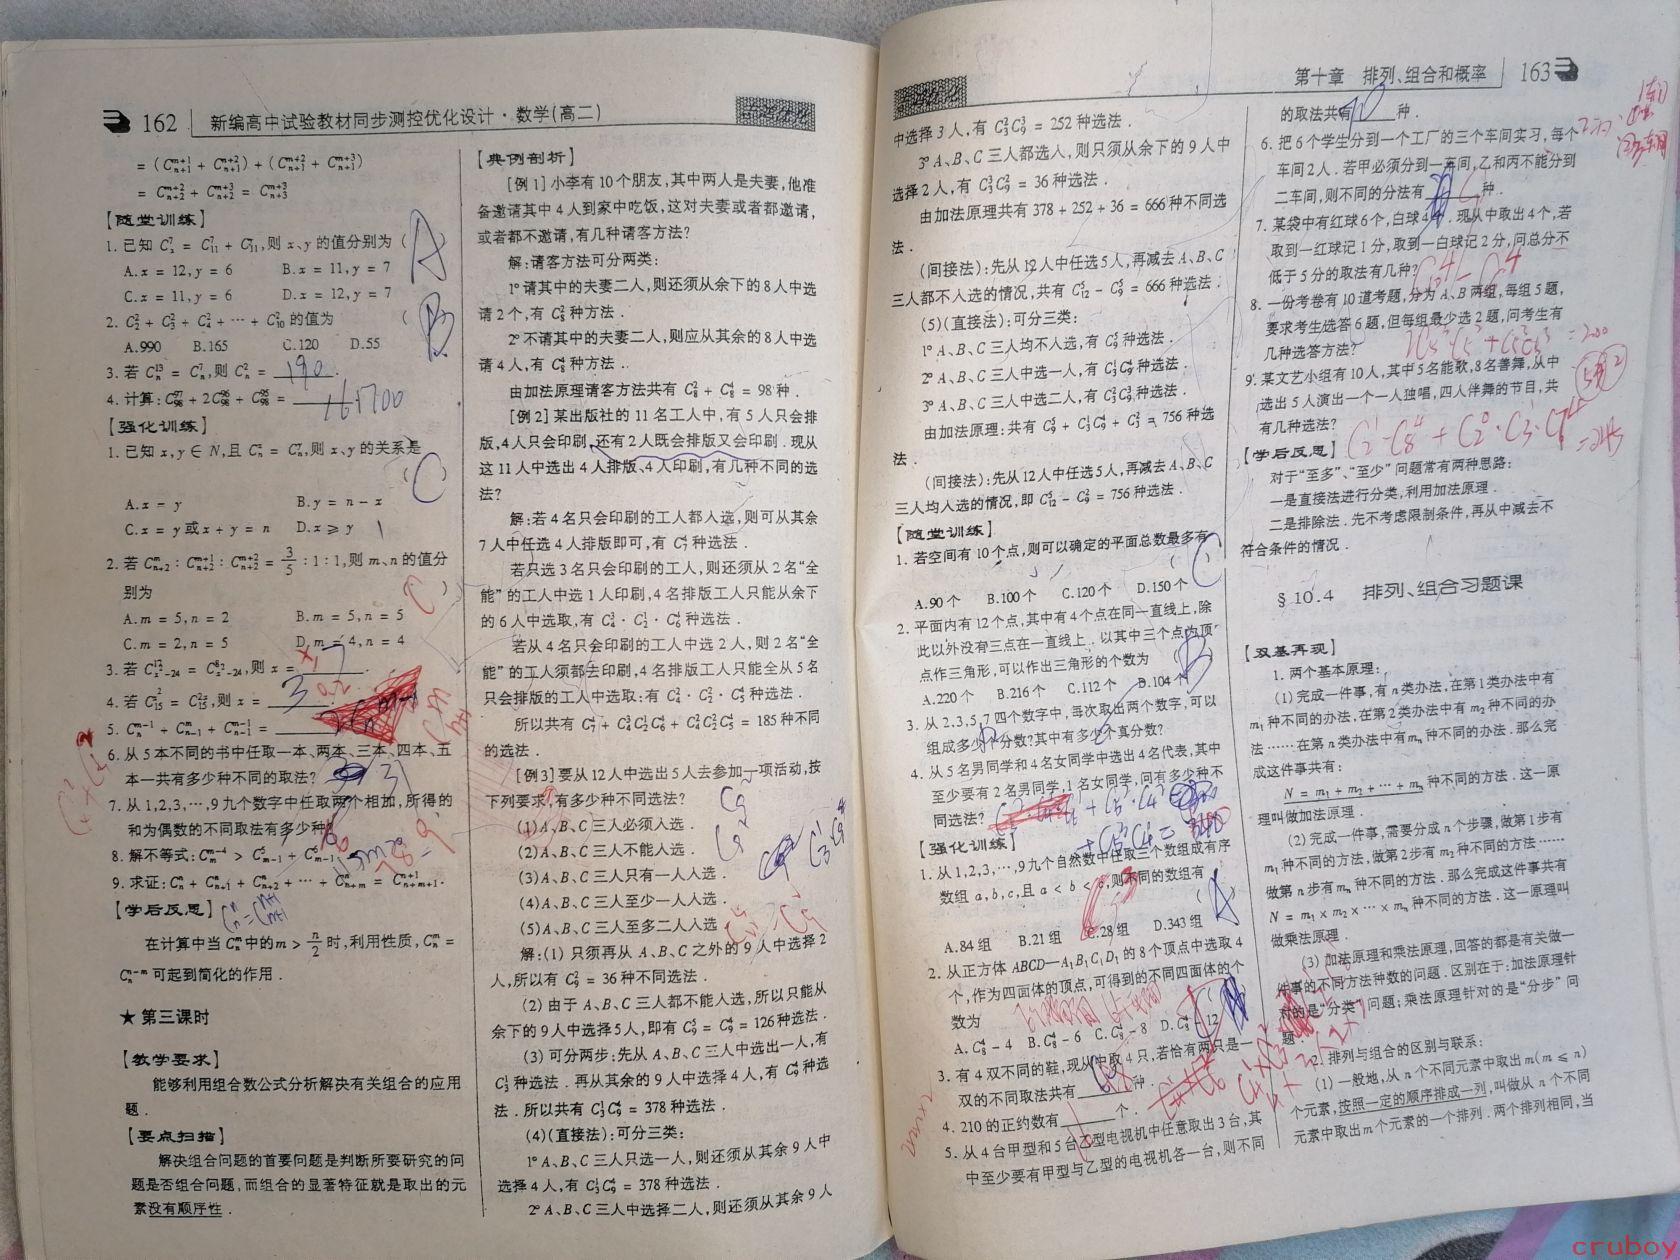 162 新编高中试验教材同步测控优化设计·数学(高二)
= (C_{n+1}^{m+1} + C_{n+1}^{m+2}) + (C_{n+1}^{m+2} + C_{n+1}^{m+3})
= C_{n+2}^{m+2} + C_{n+2}^{m+3} = C_{n+3}^{m+3}
【随堂训练】
1. 已知 C_x^7 = C_{11}^7 + C_{11}^y,则 x、y 的值分别为 ( A
A. x = 12, y = 6 B. x = 11, y = 7
C. x = 11, y = 6 D. x = 12, y = 7
2. C_2^2 + C_3^2 + C_4^2 + … + C_{10}^2 的值为 ( B
A.990 B.165 C.120 D.55
3. 若 C_n^{13} = C_n^7,则 C_n^2 = 190.
4. 计算: C_{98}^{97} + 2C_{98}^{96} + C_{98}^{95} = 161700
【强化训练】
1. 已知 x,y ∈ N,且 C_n^x = C_n^y,则 x、y 的关系是
( C )
A. x = y B. y = n − x
C. x = y 或 x + y = n D. x ≥ y
2. 若 C_{n+2}^m : C_{n+2}^{m+1} : C_{n+2}^{m+2} = 3/5 : 1 : 1,则 m、n 的值分
别为 ( C )
A. m = 5, n = 2 B. m = 5, n = 5
C. m = 2, n = 5 D. m = 4, n = 4
3. 若 , 则 x =
4. 若 , 则 x = 3
5. C_n^{m-1} + C_{n-1}^m + C_{n-1}^{m-1} =
6. 从 5 本不同的书中任取一本、两本、三本、四本、五
本一共有多少种不同的取法? 31
7. 从 1,2,3,…,9 九个数字中任取两个相加,所得的
和为偶数的不同取法有多少种
8. 解不等式: C_m^{m-4} > C_{m-1}^5 + C_{m-1}^6
9. 求证: C_n^n + C_{n+1}^n + C_{n+2}^n + … + C_{n+m}^n = C_{n+m+1}^{n+1}.
【学后反思】
在计算中当 C_n^m 中的 m > n/2 时,利用性质, C_n^m =
C_n^{n-m} 可起到简化的作用.
★ 第三课时
【教学要求】
能够利用组合数公式分析解决有关组合的应用
题.
【要点扫描】
解决组合问题的首要问题是判断所要研究的问
题是否组合问题,而组合的显著特征就是取出的元
素没有顺序性.
【典例剖析】
[例 1] 小李有 10 个朋友,其中两人是夫妻,他准
备邀请其中 4 人到家中吃饭,这对夫妻或者都邀请,
或者都不邀请,有几种请客方法?
解:请客方法可分两类:
1° 请其中的夫妻二人,则还须从余下的 8 人中选
请 2 个,有 C_8^2 种方法.
2° 不请其中的夫妻二人,则应从其余的 8 人中选
请 4 人,有 C_8^4 种方法..
由加法原理请客方法共有 C_8^2 + C_8^4 = 98 种.
[例 2] 某出版社的 11 名工人中,有 5 人只会排
版,4 人只会印刷,还有 2 人既会排版又会印刷.现从
这 11 人中选出 4 人排版、4 人印刷,有几种不同的选
法?
解:若 4 名只会印刷的工人都入选,则可从其余
7 人中任选 4 人排版即可,有 C_7^4 种选法.
若只选 3 名只会印刷的工人,则还须从 2 名“全
能”的工人中选 1 人印刷,4 名排版工人只能从余下
的 6 人中选取,有 C_4^3 · C_2^1 · C_6^4 种选法.
若从 4 名只会印刷的工人中选 2 人,则 2 名“全
能”的工人须都去印刷,4 名排版工人只能全从 5 名
只会排版的工人中选取:有 C_4^2 · C_2^2 · C_5^4 种选法.
所以共有 C_7^4 + C_4^3 C_2^1 C_6^4 + C_4^2 C_2^2 C_5^4 = 185 种不同
的选法.
[例 3] 要从 12 人中选出 5 人去参加一项活动,按
下列要求,有多少种不同选法?
(1) A、B、C 三人必须入选.
(2) A、B、C 三人不能入选.
(3) A、B、C 三人只有一人入选.
(4) A、B、C 三人至少一人入选.
(5) A、B、C 三人至多二人入选
解:(1) 只须再从 A、B、C 之外的 9 人中选择 2
人,所以有 C_9^2 = 36 种不同选法.
(2) 由于 A、B、C 三人都不能入选,所以只能从
余下的 9 人中选择 5 人,即有 C_9^5 = C_9^4 = 126 种选法.
(3) 可分两步:先从 A、B、C 三人中选出一人,有
C_3^1 种选法.再从其余的 9 人中选择 4 人,有 C_9^4 种选
法.所以共有 C_3^1 C_9^4 = 378 种选法.
(4)(直接法):可分三类:
1° A、B、C 三人只选一人,则还须从其余 9 人中
选择 4 人,有 C_3^1 C_9^4 = 378 种选法.
2° A、B、C 三人中选择二人,则还须从其余 9 人
第十章 排列、组合和概率 163
中选择 3 人,有 C_3^2 C_9^3 = 252 种选法.
3° A、B、C 三人都选入,则只须从余下的 9 人中
选择 2 人,有 C_3^3 C_9^2 = 36 种选法.
由加法原理共有 378 + 252 + 36 = 666 种不同选
法.
(间接法):先从 12 人中任选 5 人,再减去 A、B、C
三人都不入选的情况,共有 C_{12}^5 − C_9^5 = 666 种选法.
(5)(直接法):可分三类:
1° A、B、C 三人均不入选,有 C_9^5 种选法.
2° A、B、C 三人中选一人,有 C_3^1 C_9^4 种选法.
3° A、B、C 三人中选二人,有 C_3^2 C_9^3 种选法.
由加法原理:共有 C_9^5 + C_3^1 C_9^4 + C_3^2 = 756 种选
法.
(间接法):先从 12 人中任选 5 人,再减去 A、B、C
三人均入选的情况,即 C_{12}^5 − C_9^2 = 756 种选法.
【随堂训练】
1. 若空间有 10 个点,则可以确定的平面总数最多有
( C )
A.90 个 B.100 个 C.120 个 D.150 个
2. 平面内有 12 个点,其中有 4 个点在同一直线上,除
此以外没有三点在一直线上.以其中三个点为顶
点作三角形,可以作出三角形的个数为 ( B
A.220 个 B.216 个 C.112 个 D.104 个
3. 从 2,3,5,7 四个数字中,每次取出两个数字,可以
组成多少个分数?其中有多少个真分数?
4. 从 5 名男同学和 4 名女同学中选出 4 名代表,其中
至少要有 2 名男同学,1 名女同学,问有多少种不
同选法?
【强化训练】
1. 从 1,2,3,…,9 九个自然数中任取三个数组成有序
数组 a,b,c,且 a < b < c,则不同的数组有
( A
A.84 组 B.21 组 C.28 组 D.343 组
2. 从正方体 ABCD—A₁B₁C₁D₁ 的 8 个顶点中选取 4
个,作为四面体的顶点,可得到的不同四面体的个
数为 (
A. C_8^4 − 4 B. C_8^4 − 6 C. C_8^4 − 8 D. C_8^4 − 12
3. 有 4 双不同的鞋,现从中取 4 只,若恰有两只是一
双的不同取法共有 种.
4. 210 的正约数有 个.
5. 从 4 台甲型和 5 台乙型电视机中任意取出 3 台,其
中至少要有甲型与乙型的电视机各一台,则不同
的取法共有 70 种.
6. 把 6 个学生分到一个工厂的三个车间实习,每个
车间 2 人.若甲必须分到一车间,乙和丙不能分到
二车间,则不同的分法有 种.
7. 某袋中有红球 6 个,白球 4 个.现从中取出 4 个,若
取到一红球记 1 分,取到一白球记 2 分,问总分不
低于 5 分的取法有几种?
8. 一份考卷有 10 道考题,分为 A、B 两组,每组 5 题,
要求考生选答 6 题,但每组最少选 2 题,问考生有
几种选答方法? =200
9. 某文艺小组有 10 人,其中 5 名能歌,8 名善舞,从中
选出 5 人演出一个一人独唱,四人伴舞的节目,共
有几种选法?
【学后反思】
对于“至多”、“至少”问题常有两种思路:
一是直接法进行分类,利用加法原理.
二是排除法.先不考虑限制条件,再从中减去不
符合条件的情况.
§10.4 排列、组合习题课
【双基再现】
1. 两个基本原理:
(1) 完成一件事,有 n 类办法,在第 1 类办法中有
m₁ 种不同的办法,在第 2 类办法中有 m₂ 种不同的办
法……在第 n 类办法中有 mₙ 种不同的办法.那么完
成这件事共有:
N = m₁ + m₂ + … + mₙ 种不同的方法.这一原
理叫做加法原理.
(2) 完成一件事,需要分成 n 个步骤,做第 1 步有
m₁ 种不同的方法,做第 2 步有 m₂ 种不同的方法……
做第 n 步有 mₙ 种不同的方法.那么完成这件事共有
N = m₁ × m₂ × … × mₙ 种不同的方法.这一原理叫
做乘法原理.
(3) 加法原理和乘法原理,回答的都是有关做一
件事的不同方法种数的问题.区别在于:加法原理针
对的是“分类”问题;乘法原理针对的是“分步”问
题.
2. 排列与组合的区别与联系:
(1) 一般地,从 n 个不同元素中取出 m(m ≤ n)
个元素,按照一定的顺序排成一列,叫做从 n 个不同
元素中取出 m 个元素的一个排列.两个排列相同,当
cruboy